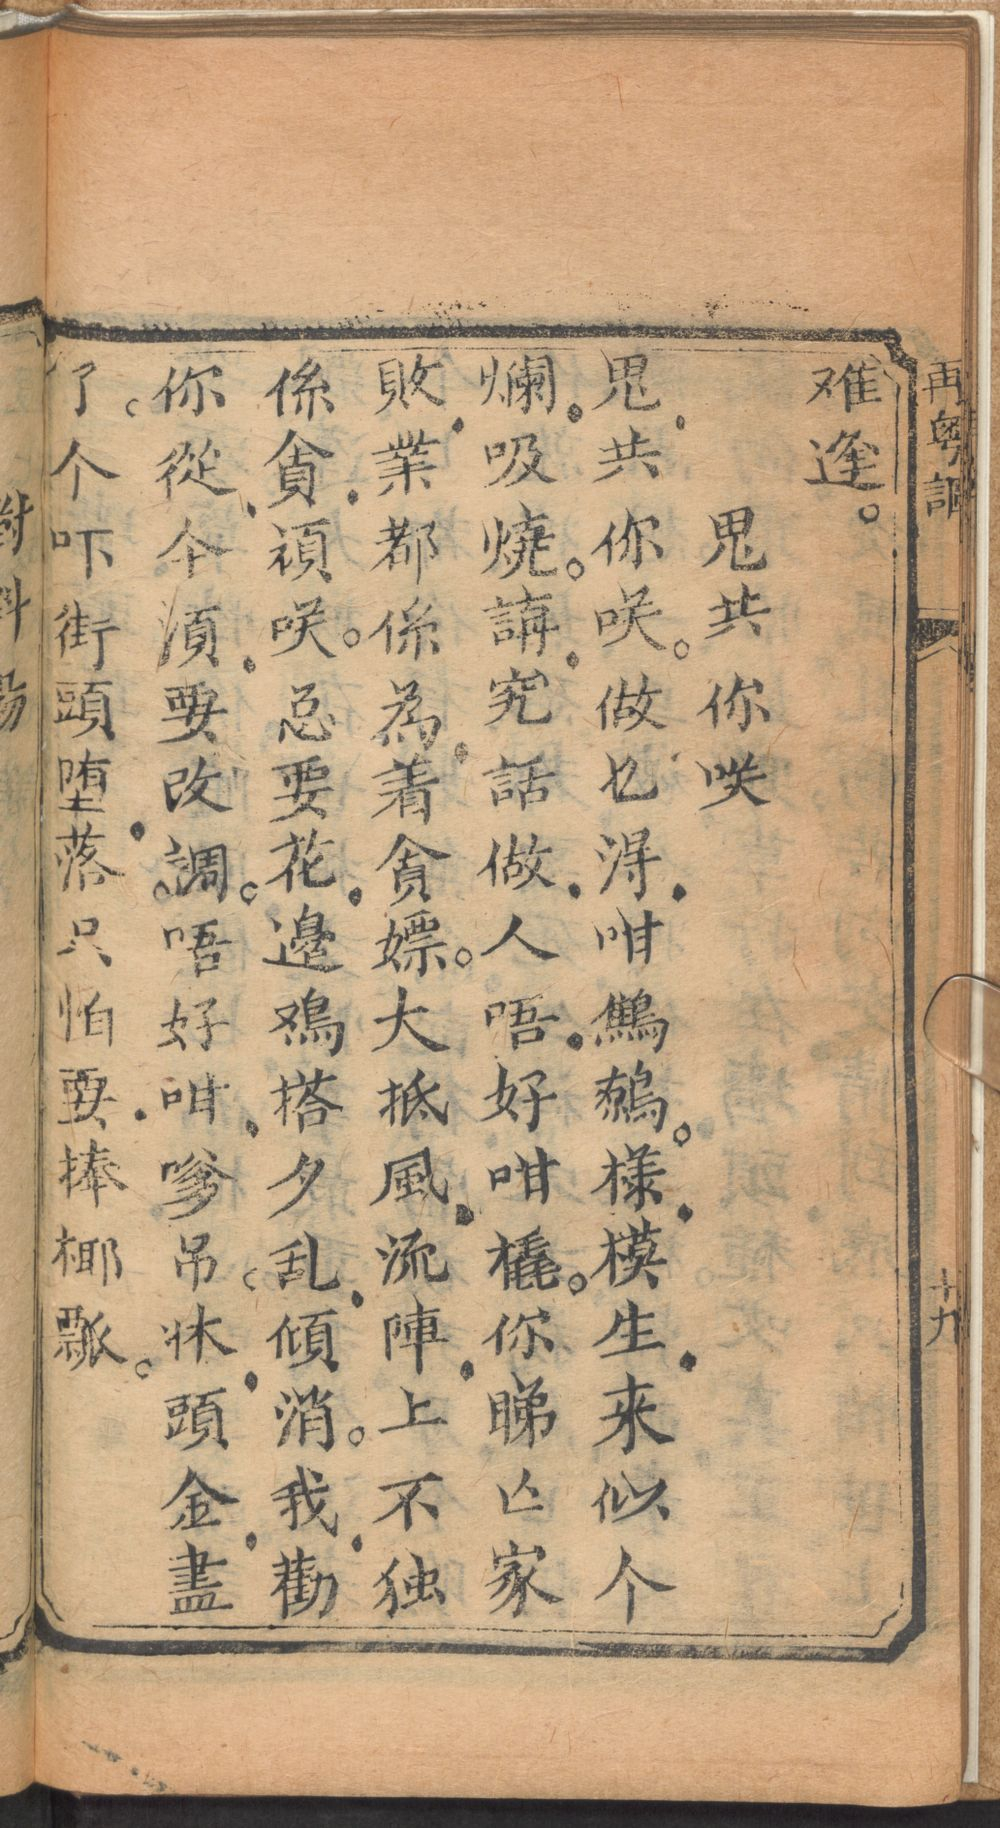 再粵謳
十九
难逢。
鬼共你咲
鬼共你咲。做乜淂咁䲴鵚。様模生来似个
爛吸燒。講究話做人唔好咁橇。你睇亾家
敗業都係為着貪嫖。大抵風流陣上不独
係貪禎咲。忌要花邉鳮搭夕乱傾消。我勸
你從今湏要改調。唔好咁嗲吊。炑頭金盡
了个吓街頭墮落只怕要捧椰瓢。